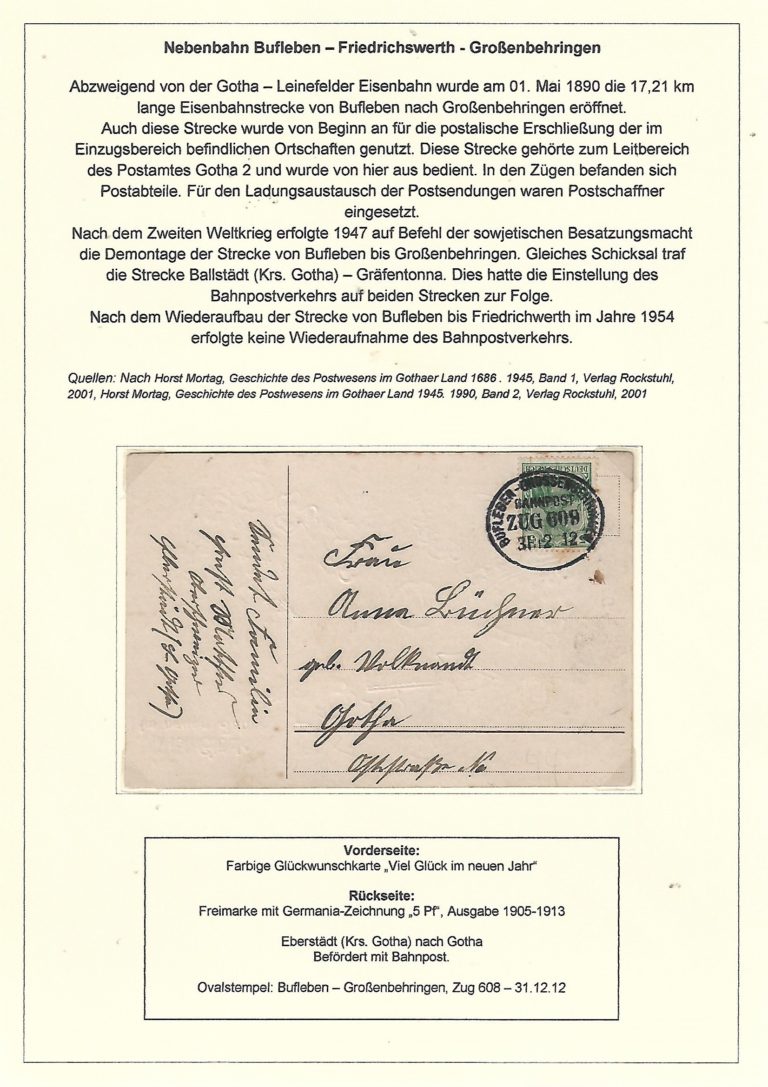 Nebenbahn Bufleben – Friedrichswerth - Großenbehringen
Abzweigend von der Gotha – Leinefelder Eisenbahn wurde am 01. Mai 1890 die 17,21 km
lange Eisenbahnstrecke von Bufleben nach Großenbehringen eröffnet.
Auch diese Strecke wurde von Beginn an für die postalische Erschließung der im
Einzugsbereich befindlichen Ortschaften genutzt. Diese Strecke gehörte zum Leitbereich
des Postamtes Gotha 2 und wurde von hier aus bedient. In den Zügen befanden sich
Postabteile. Für den Ladungsaustausch der Postsendungen waren Postschaffner
eingesetzt.
Nach dem Zweiten Weltkrieg erfolgte 1947 auf Befehl der sowjetischen Besatzungsmacht
die Demontage der Strecke von Bufleben bis Großenbehringen. Gleiches Schicksal traf
die Strecke Ballstädt (Krs. Gotha) – Gräfentonna. Dies hatte die Einstellung des
Bahnpostverkehrs auf beiden Strecken zur Folge.
Nach dem Wiederaufbau der Strecke von Bufleben bis Friedrichwerth im Jahre 1954
erfolgte keine Wiederaufnahme des Bahnpostverkehrs.
Quellen: Nach Horst Mortag, Geschichte des Postwesens im Gothaer Land 1686 . 1945, Band 1, Verlag Rockstuhl,
2001, Horst Mortag, Geschichte des Postwesens im Gothaer Land 1945. 1990, Band 2, Verlag Rockstuhl, 2001
DEUTSCHES REICH
BUFLEBEN-GROSSENBEHRINGEN
BAHNPOST
ZUG 609
31.12 12
Frau
Anna Büchner
geb. Volknandt
Gotha
Oststraße No
Familie
Ernst
Vorderseite:
Farbige Glückwunschkarte „Viel Glück im neuen Jahr“
Rückseite:
Freimarke mit Germania-Zeichnung „5 Pf“, Ausgabe 1905-1913
Eberstädt (Krs. Gotha) nach Gotha
Befördert mit Bahnpost.
Ovalstempel: Bufleben – Großenbehringen, Zug 608 – 31.12.12